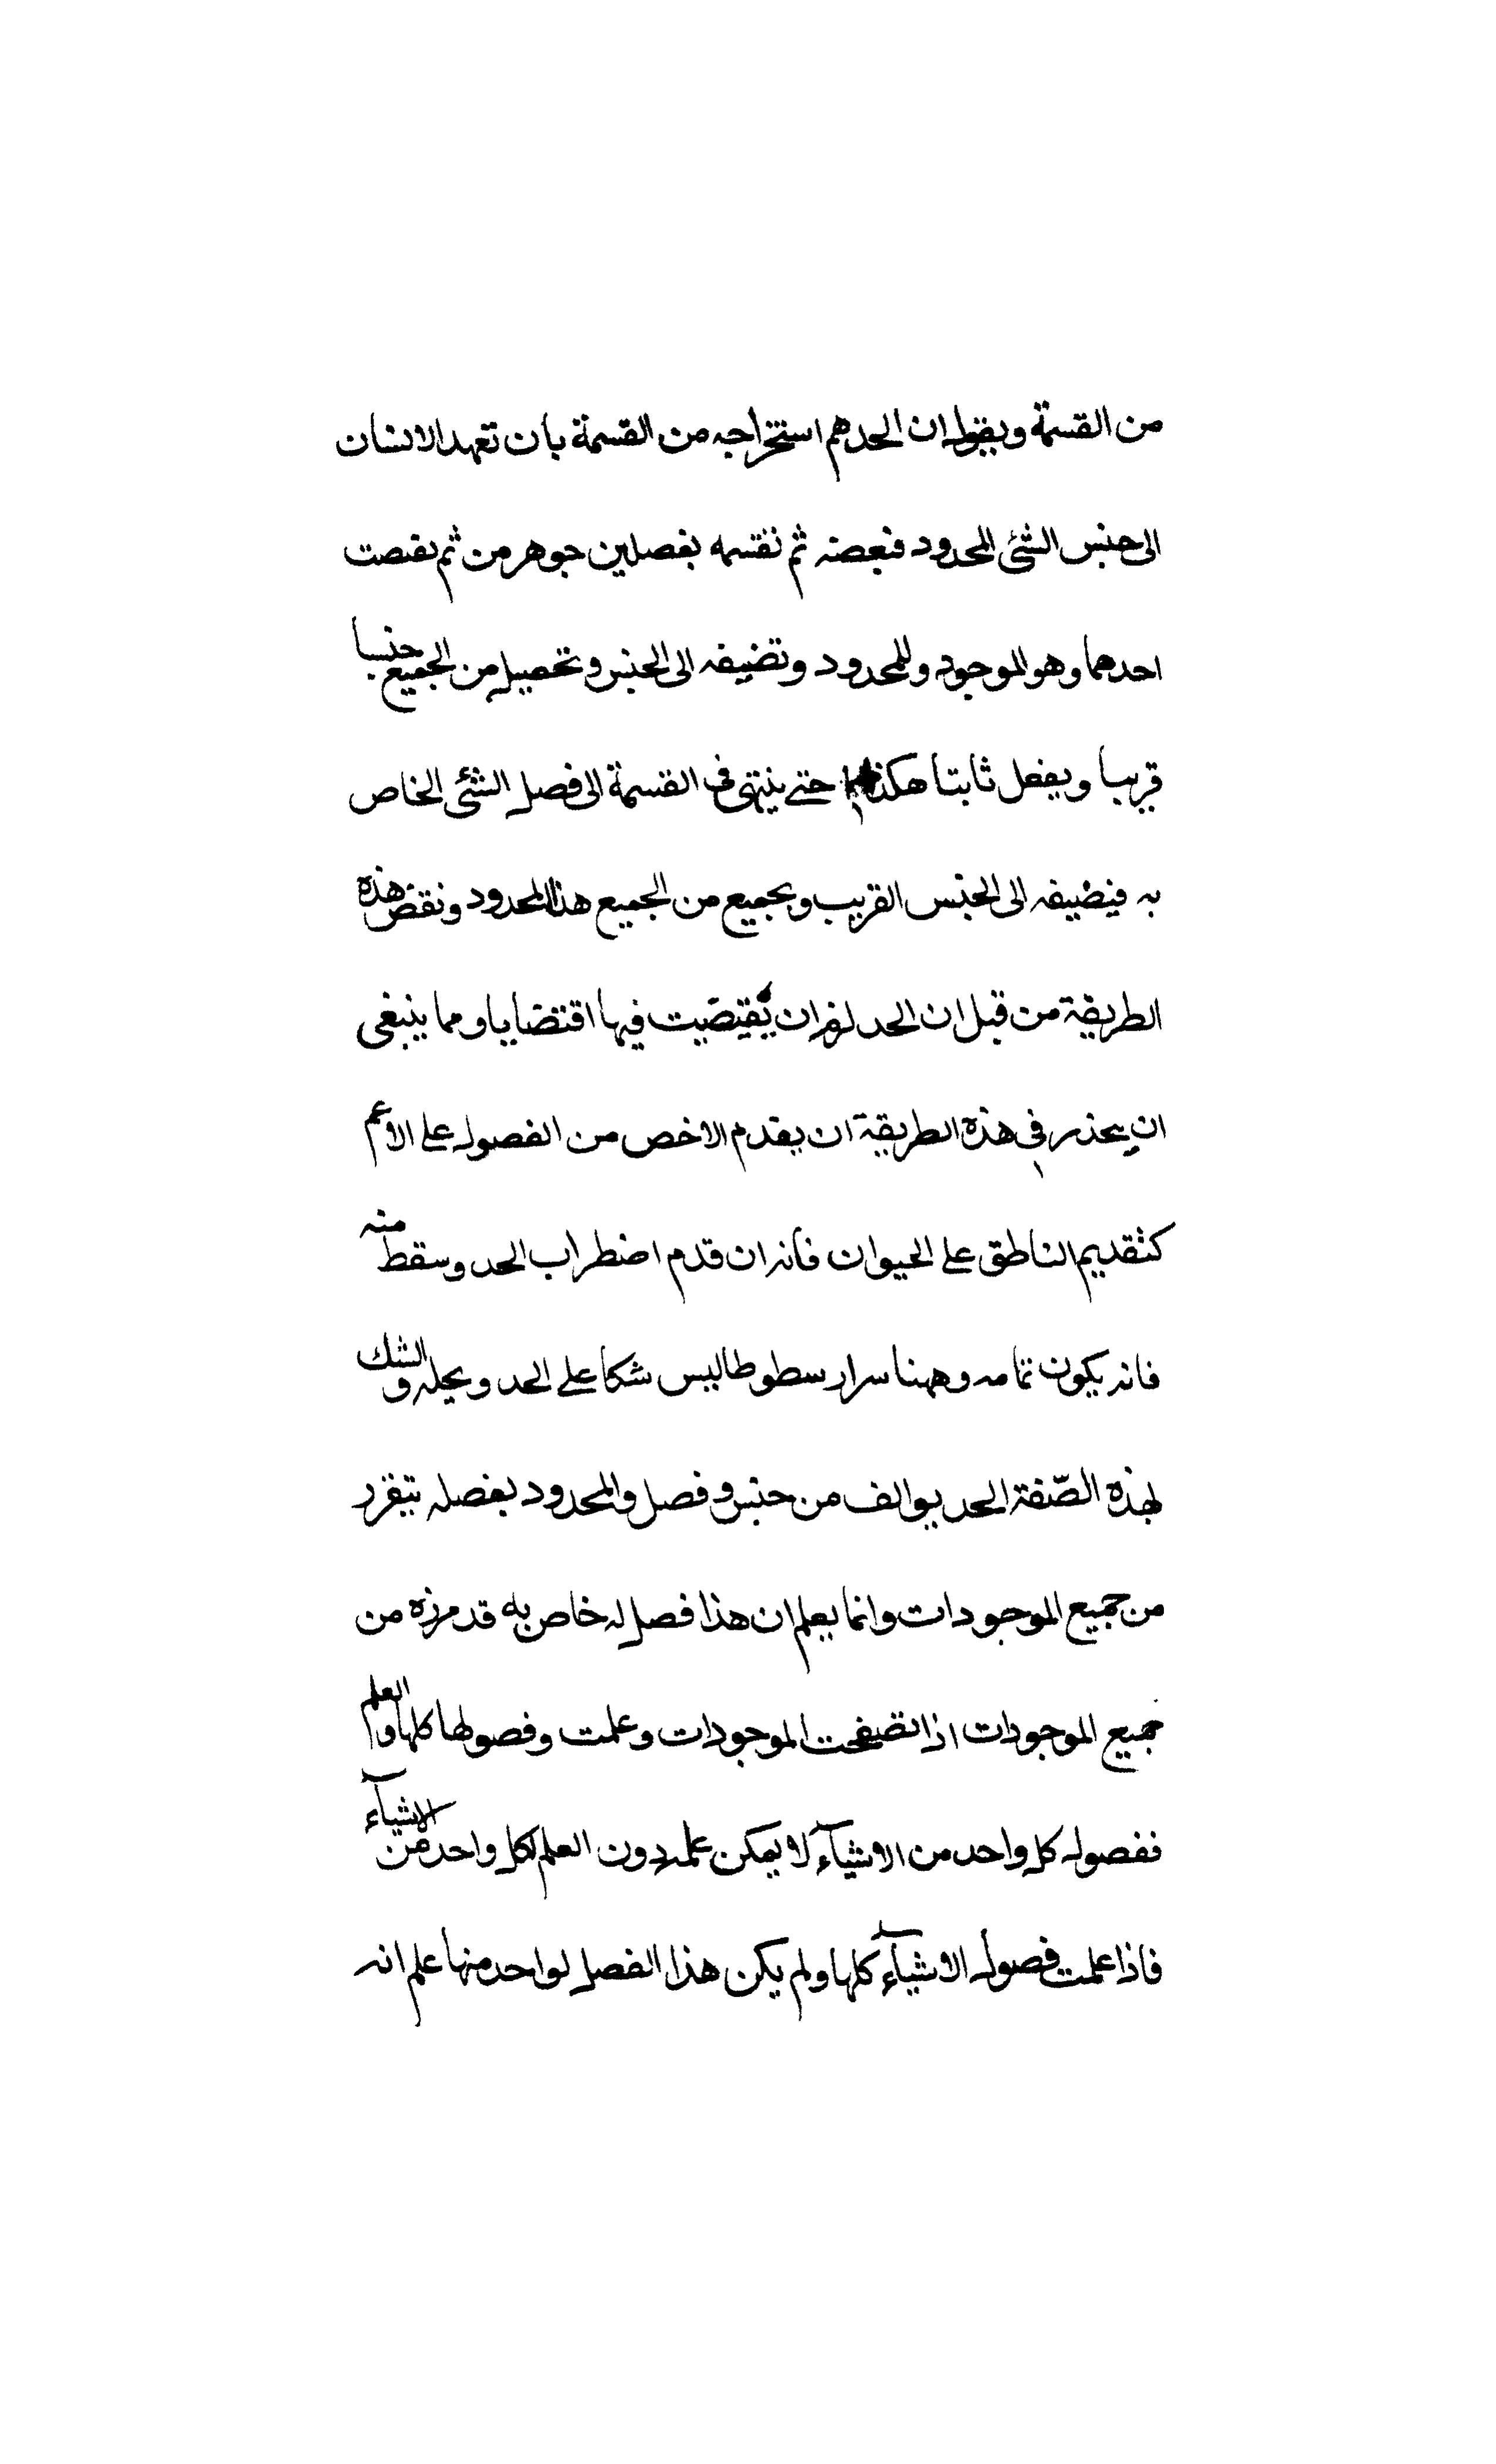 من القسمة ويقول ان الحدهم استخراجه من القسمة بان تعهد الانسان
الى جنس الشئى المحدود فبعضه ثم نقسمه بفصلين جوهرمن ثم بقصت
احدهما وهو الموجود وللمحدود وتضيفه الى الجنس وتحصيل من الجميع جنسا
قريبا ويفعل ثابتا هكذا حتے ينتهى فى القسمة الى فصل الشئى الخاص
به فيضيفه الى الجنس القريب وبجميع من الجميع هذا المحدود ونقض هذه
الطريقة من قبل ان الحد لزم ان يقيضيت فيها اقتضايا ومما ينبغى
ان يحذر فى هذه الطريقة ان يقدم الاخص من الفصول على الاعم
كتقديم الناطق على الحيوان فانه ان قدم اضطراب الحد وسقط منه
فانه يكون تمامه وههنا سرار سطوطاليس شكا على الحد ويحله والشك
لهذه الصّفة الحد يوالف من جنس وفصل والمحدود بفصله يتقرر
من جميع الموجودات وانما يعلم ان هذا فصل له خاص به قد مرزه من
جميع الموجودات اذا تصفحت الموجودات وعلمت وفصولها كلها والعلم
ففصول كل واحد من الاشيآء لا يمكن علمه دون العلم لكل واحد من الاشيآء
فاذا علمت فصول الاشيآء كلها ولم يكن هذا الفصل لواحد منها علم انه